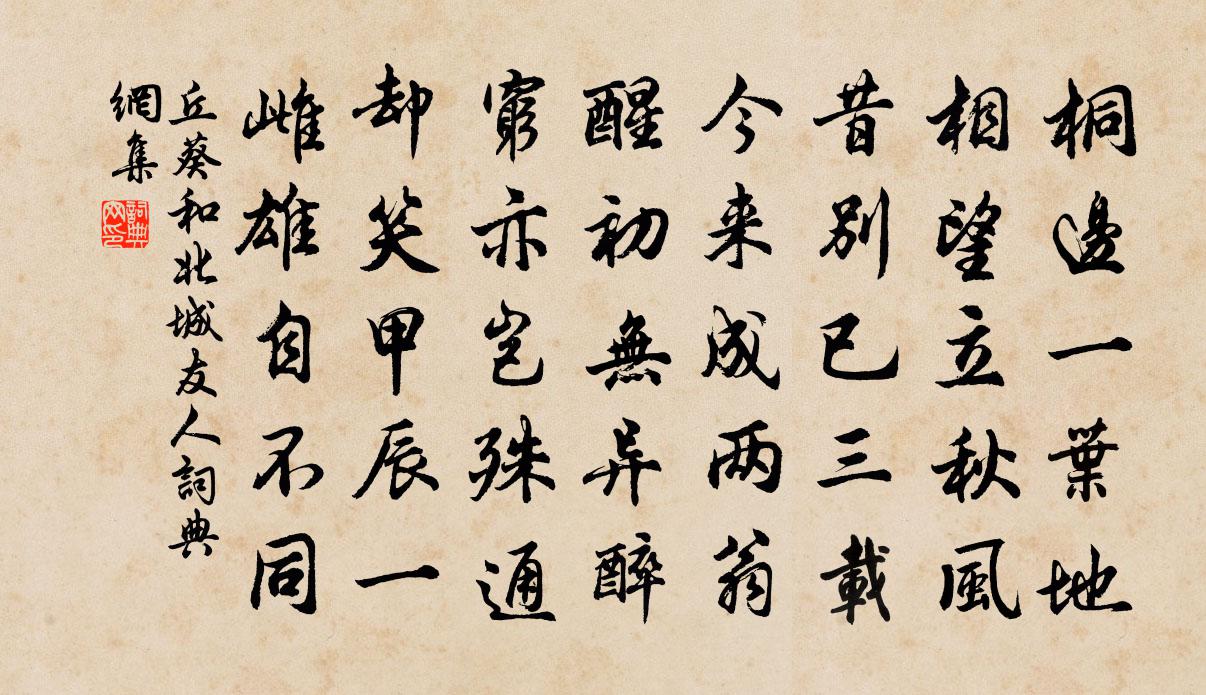 桐邊一葉地
相望立秋風
昔别已三載
今来成两翁
醒初無异醉
窮亦岂殊通
却笑甲辰一
雌雄自不同
丘葵和北城友人詞典
網集
詞典
网印